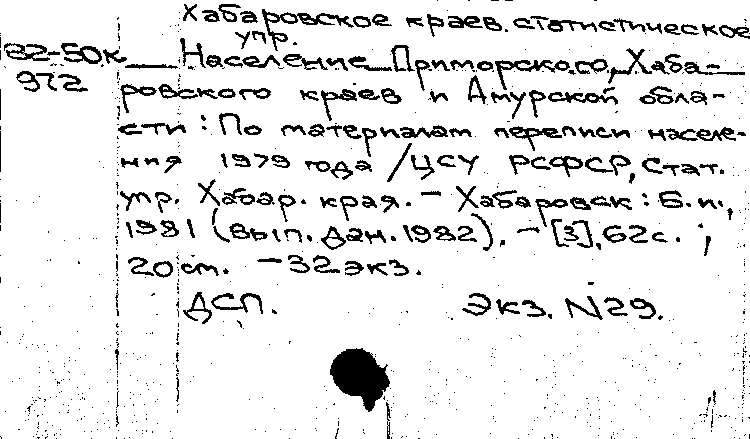 Хабаровское краев. статистическое
упр.
82-50к Население Приморского, Хаба-
972 ровского краев и Амурской обла-
сти: По материалам переписи населе-
ния 1979 года / ЦСУ РСФСР, Стат.
упр. Хабар. края. - Хабаровск: Б.и.,
1981 (вып. дан. 1982). - [3], 62с.;
20 см. - 32 экз.
ДСП. Экз. N29.